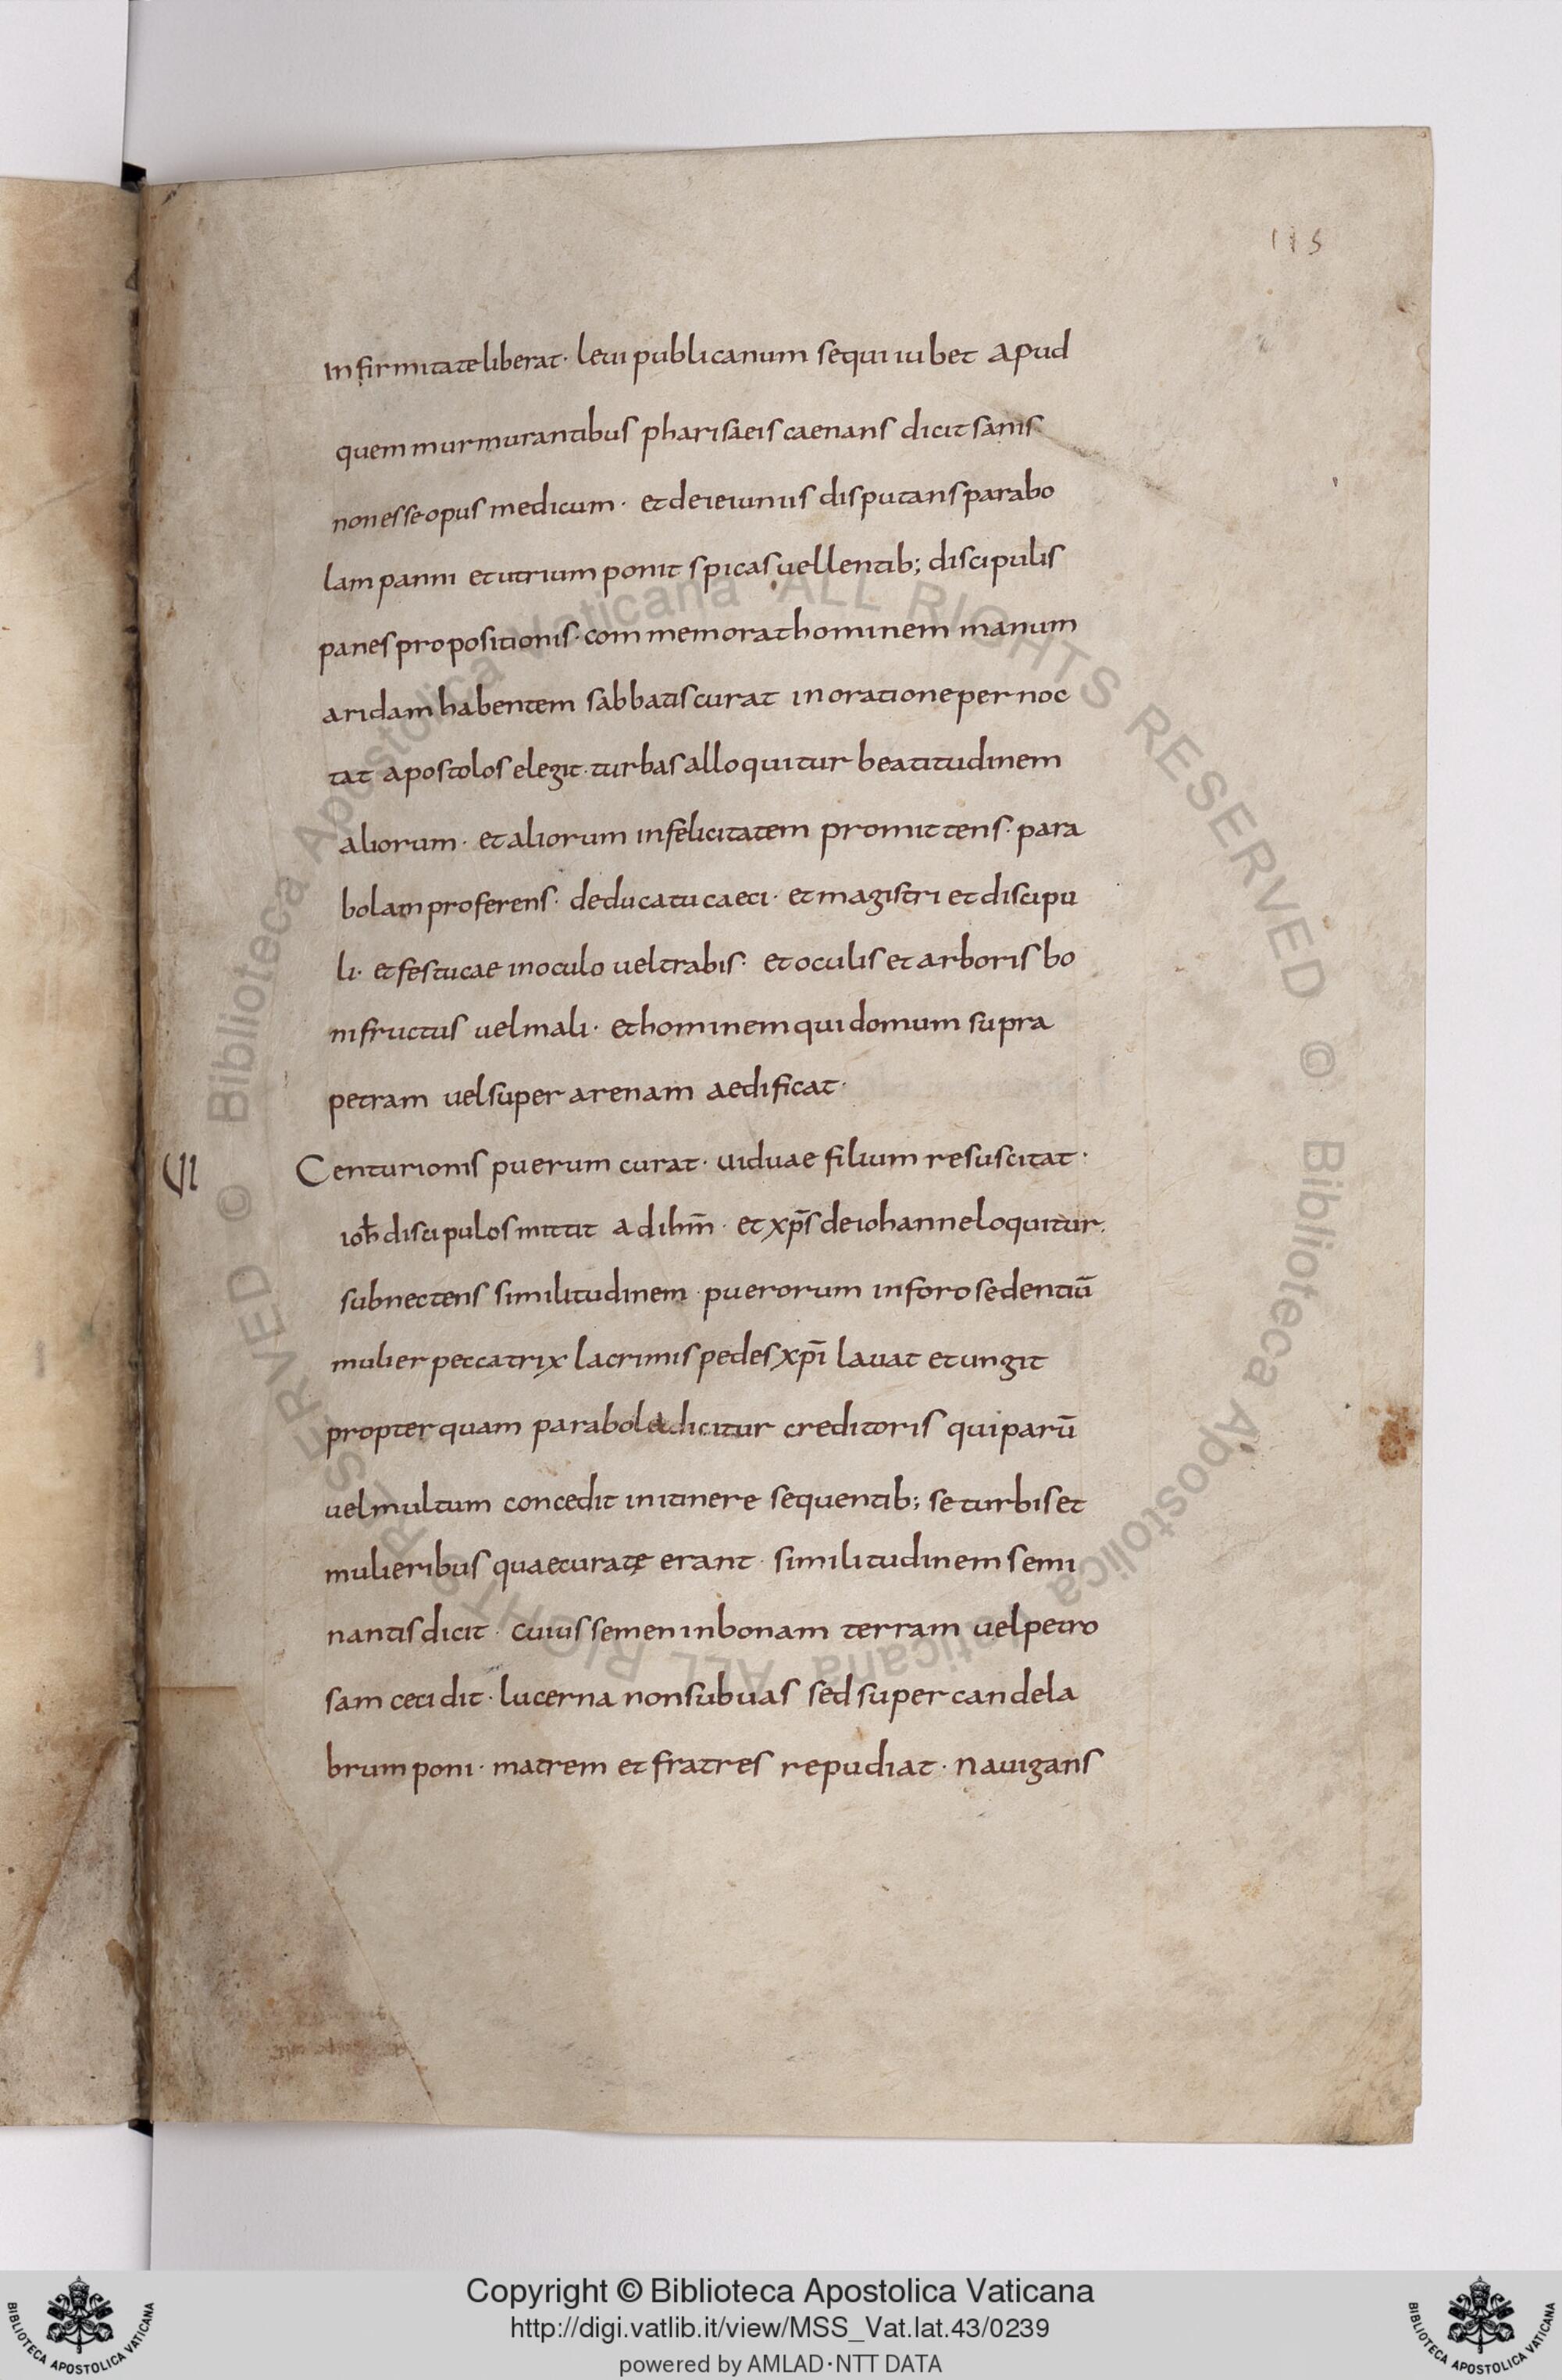 115
infirmitate liberat· leui publicanum sequi iubet apud
quem murmurantibus pharisaeis caenans dicit sanis
non esse opus medicum· et de ieiuniis disputans parabo
lam panni et utrium ponit spicas uellentib; discipulis
panes propositionis· commemorat hominem manum
aridam habentem sabbatis curat in oratione pernoc
tat apostolos elegit· turbas alloquitur beatitudinem
aliorum· et aliorum infelicitatem promittens· para
bolam proferens· de ducatu caeci· et magistri et discipu
li· et festucae in oculo uel trabis· et oculis et arboris bo
ni fructus uel mali· et hominem qui domum supra
petram uel super arenam aedificat·
VI Centurionis puerum curat· uiduae filium resuscitat·
ioh̄ discipulos mittit ad ihm̄· et xp̄s de iohanne loquitur·
subnectens similitudinem· puerorum in foro sedentiū
mulier peccatrix lacrimis pedes xp̄i lauat et ungit
propter quam parabola dicitur creditoris qui parū
uel multum concedit in itinere sequentib; se turbis et
mulieribus quae curatę erant· similitudinem semi
nantis dicit· cuius semen in bonam terram uel petro
sam cecidit· lucerna non sub uas sed super candela
brum poni· matrem et fratres repudiat· nauigans
Biblioteca Apostolica Vaticana ALL RIGHTS RESERVED ©
Biblioteca Apostolica Vaticana ALL RIGHTS RESERVED ©
Copyright © Biblioteca Apostolica Vaticana
http://digi.vatlib.it/view/MSS_Vat.lat.43/0239
powered by AMLAD·NTT DATA
BIBLIOTECA APOSTOLICA VATICANA
BIBLIOTECA APOSTOLICA VATICANA